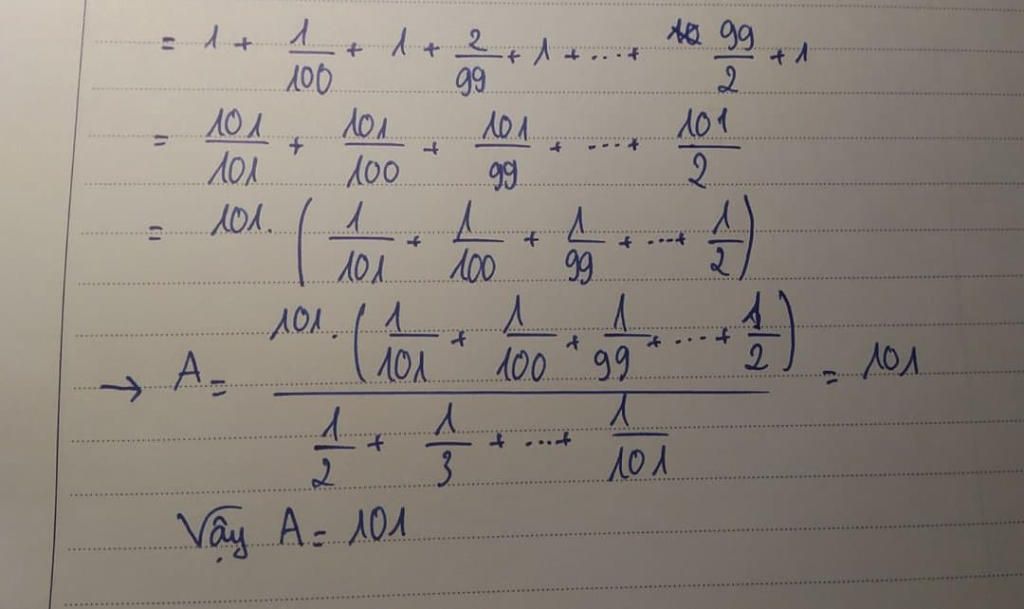 = 1 + 1/100 + 1 + 2/99 + 1 + ... + 99/2 + 1
= 101/101 + 101/100 + 101/99 + ... + 101/2
= 101. (1/101 + 1/100 + 1/99 + ... + 1/2)
→ A = 101. (1/101 + 1/100 + 1/99 + ... + 1/2) / (1/2 + 1/3 + ... + 1/101) = 101
Vậy A = 101